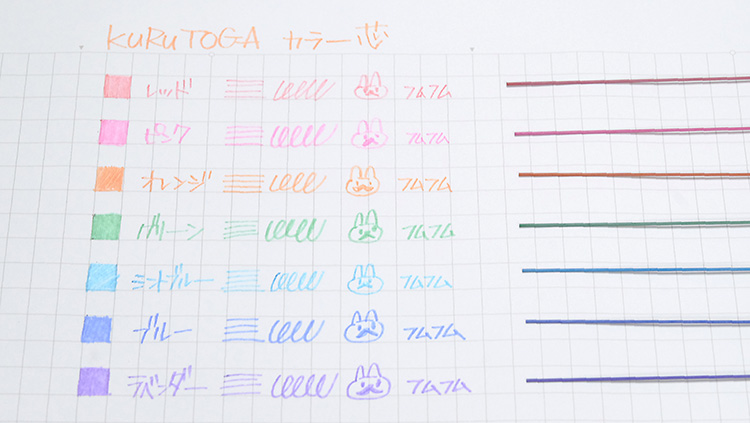 KURUTOGA カラー芯
レッド フムフム
ピンク フムフム
オレンジ フムフム
グリーン フムフム
ミントブルー フムフム
ブルー フムフム
ラベンダー フムフム